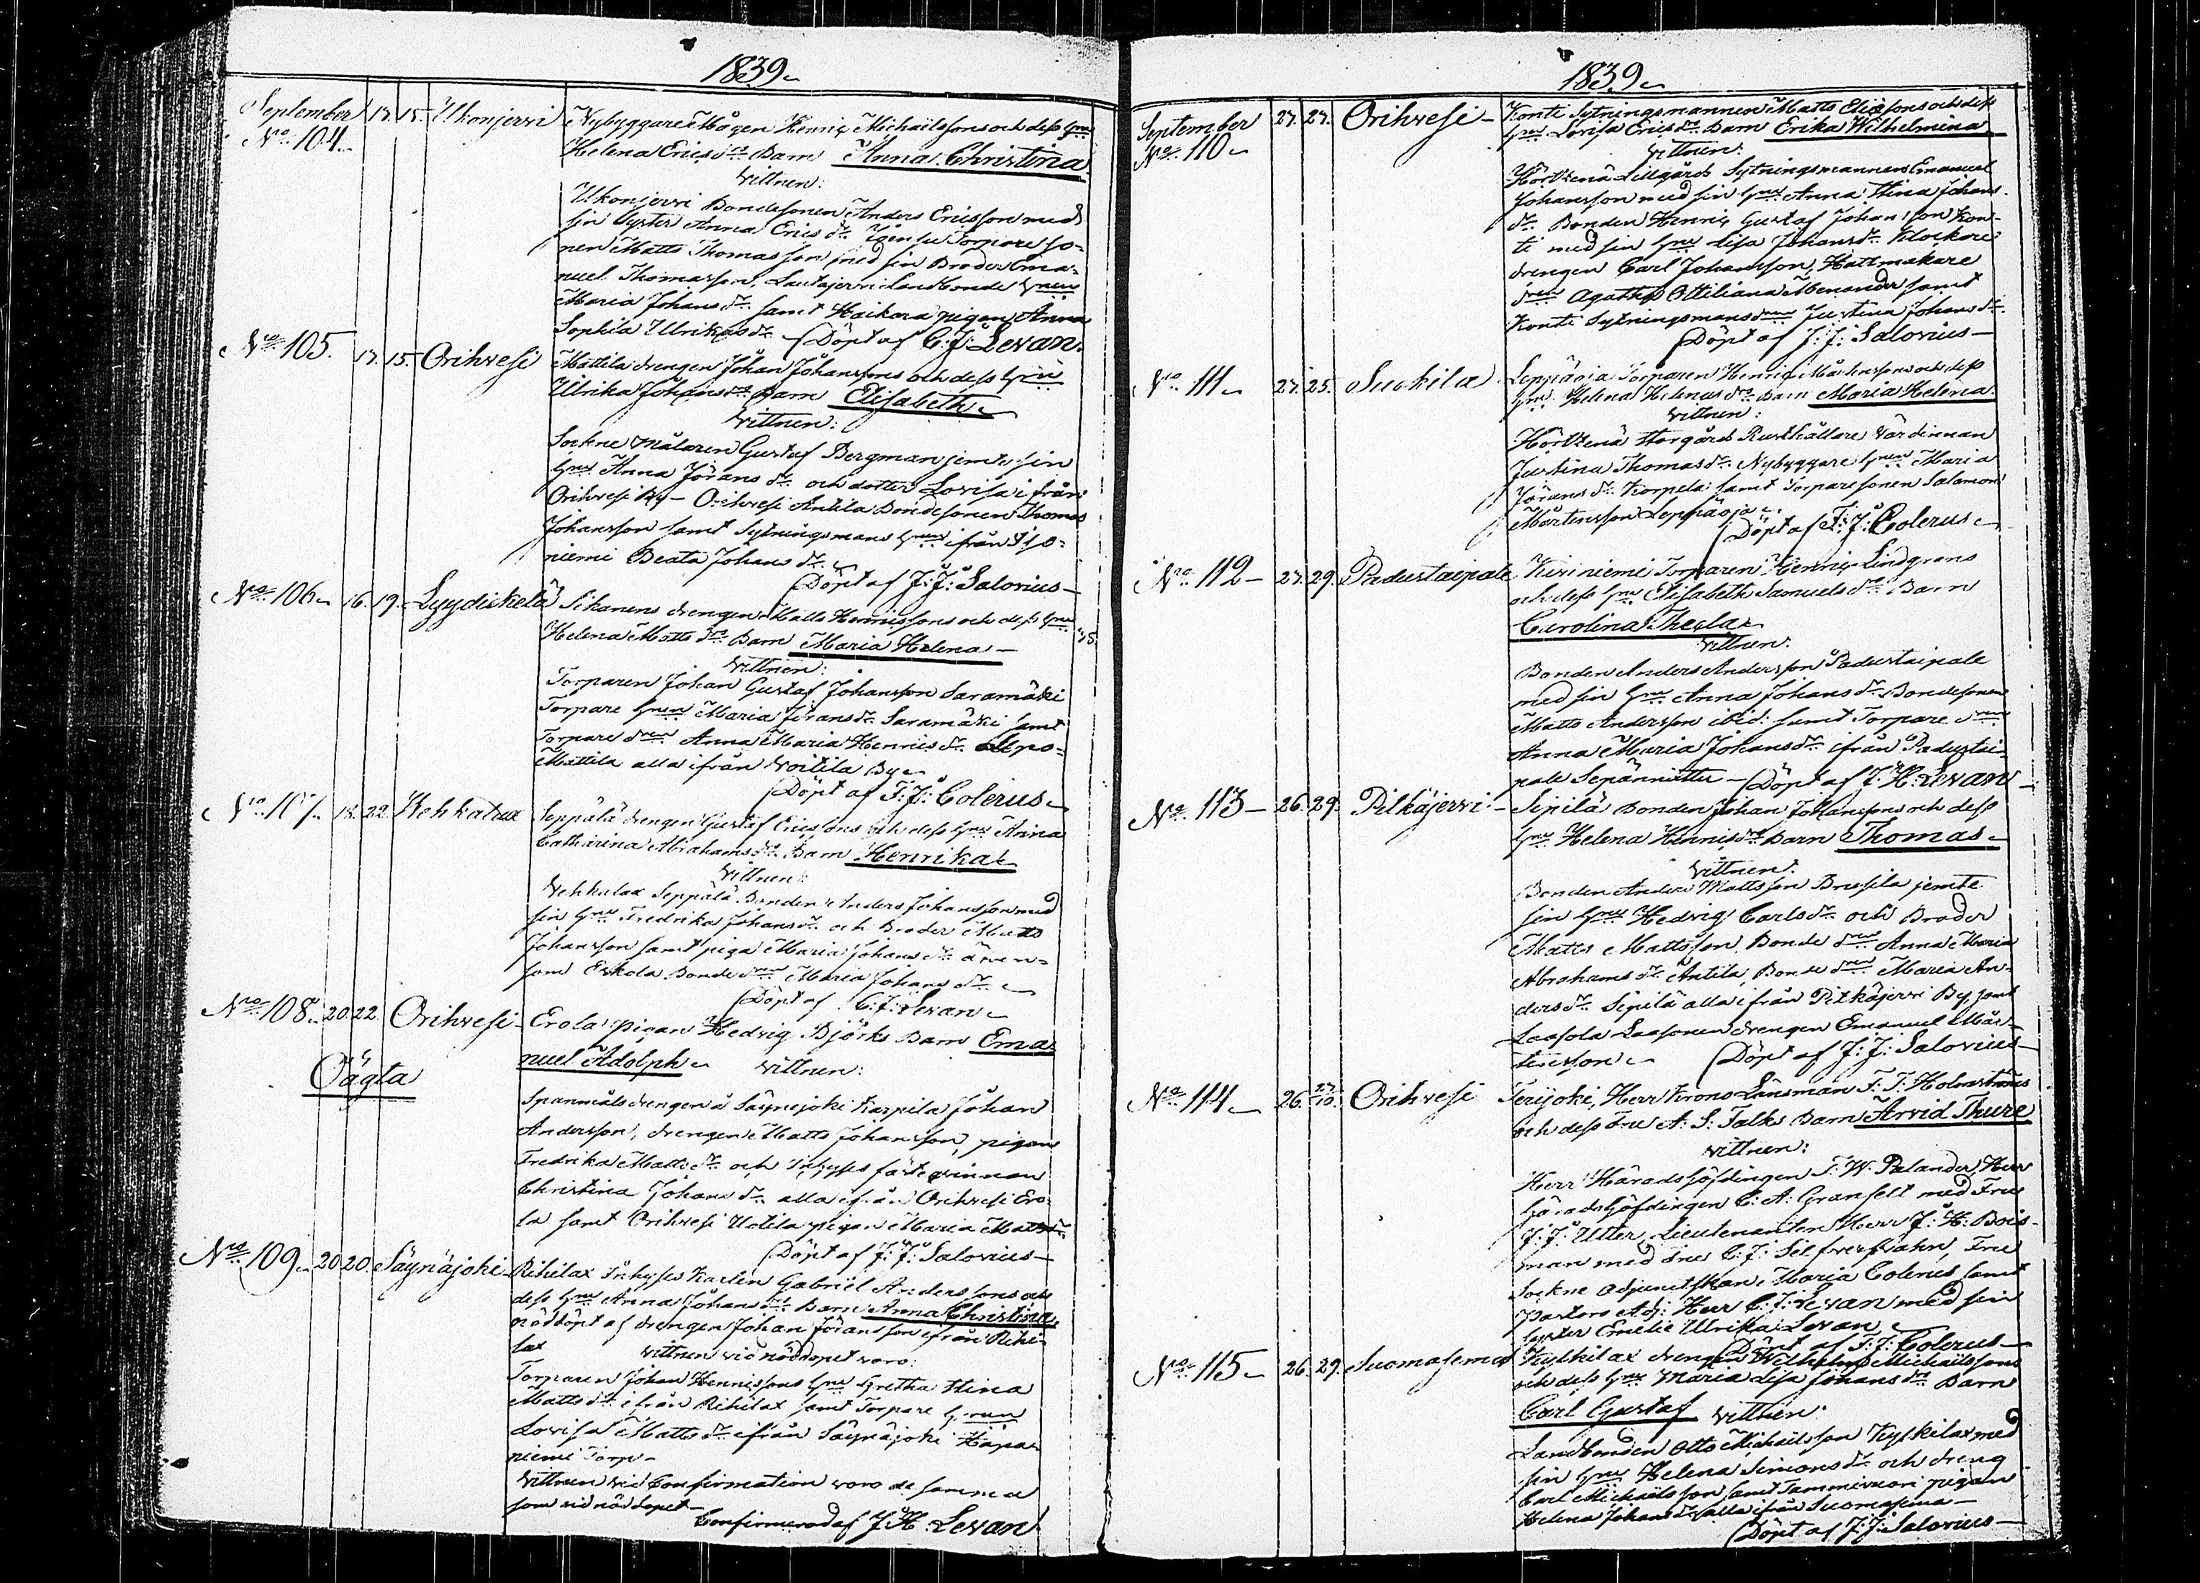 1839
September 17. 15. Ukonjervi Nybyggare Mågen Henric Michaëlssons och dess Hru
No 104. Helena Erics dr Barn Anna Christina
Vittnen:
Ukonjervi Bondesonen Anders Ericsson med
sin Syster Anna Erics dr Torpare so-
nen Matts Thomasson med sin Broder Ema-
nuel Thomasson, Lautajervi Landbonde Hrun
Maria Johans dr samt Haikara pigan Anna
Sophia Ulrikas dr Döpt af C: J: Levan.
No 105. 17. 15. Orihvesi Mattila drengen Johan Johanssons och dess Hru
Ulrika Johans dr Barn Elisabeth
Vittnen:
Sockne målaren Gustaf Bergman jemte sin
Hru Anna Jörans dr och dotter Lovisa ifrån
Orihvesi By – Orihvesi Antila Bondesonen Thomas
Johansson samt Sytningsmans Hrun ifrån
niemi Beata Johans dr
Döpt af J: J: Salovius
No 106 16. 19. Lyydikelä Sihanens drengen Matts Henricssons och dess Hru 35.
Helena Matts dr Barn Maria Helena
Vittnen:
Torparen Johan Gustaf Johansson Saramäki
Torpare Hrun Maria Jörans dr Saramäki samt
Torpare drun Anna Maria Henrics dr
Mattila alla ifrån Voitila By
Döpt af F: J: Colerus
No 107 18. 22. Vehkalax Seppälä drengen Gustaf Ericssons och dess Hru Anna
Catharina Abrahams dr Barn Henrika
Vittnen:
Vehkalax Seppälä Bonden Anders Johansson med
sin Hru Fredrika Johans dr och Broder Matts
Johansson samt piga Maria Johans dr även-
som Erkola Bonde drun Maria Johans dr
Döpt af C: J: Levan
No 108. 20. 22. Orihvesi Erola pigan Hedvig Björks Barn Ema-
Oägta nuel Adolph Vittnen:
Spanmåls drengen å Säynejoki Karpila Johan
Andersson, drengen Matts Johansson, pigan
Fredrika Matts dr och Inhyses fästeqvinnan
Christina Johans dr alla ifrån Orihvesi Ero-
la samt Orihvesi Uotila pigan Maria Matts dr
Döpt af J: J: Salovius
No 109 20. 20. Säynäjoki Rihilax Inhyses Karlen Gabriël Anderssons och
dess Hru Anna Johans dr Barn Anna Christina
nöddöpt af drengen Johan Jöransson ifrån Rihi-
lax Vittnen vid nöddopet voro:
Torparen Johan Henricssons Hru Gretha Stina
Matts dr ifrån Rihilax samt Torpare Hrun
Lovisa Matts dr ifrån Säynäjoki Häpä-
niemi Torp
Vittnen vid Confirmation voro de samma
som vid nöddopet
Confirmerad af J: H: Levan
1839
September 27. 27. Orihvesi Konti Sytningsmannen Matts Eliæsons och dess
No 110 Hru Lovisa Erics dr Barn Erika Wilhelmina
Vittnen:
Hörtzenä Lillgårds Sytningsmannen Emanuel
Johansson med sin Hru Anna Stina Johans
dr Bonden Henric Gustaf Johansson Kon-
ti med sin Hru Lisa Johans dr Klockare
drengen Carl Johansson, Hattmakare
drun Agatha Ottiliana Menander samt
Konti Sytningsmansdrun Justina Johans dr
Döpt af J: J: Salovius
No 111 27. 25. Suokila Leppäoja Torparen Henric Mårtenssons och dess
Hru Helena Helenas dr Barn Maria Helena
Vittnen:
Hörtzenä Storgårds Rusthållare Värdinnan
Justina Thomas dr Nybyggare Hrun Maria
Jörans dr Korpela samt Torparesonen Salomon
Mårtensson Leppäoja
Döpt af F: J: Colerus
No 112 27. 29. Padustaipale Kiriniemi Torparen Henric Lindgrens
och dess Hru Elisabeth Samuels dr Barn
Carolina Thecla
Vittnen:
Bonden Anders Andersson Padustaipale
med sin Hru Anna Johans dr Bondesonen
Matts Andersson ibid: samt Torpare drun
Anna Maria Johans dr ifrån Padustai-
pale Sepänniitti Döpt af J: H: Levan
No 113 26. 29. Pitkäjervi Sipilä Bonden Johan Johanssons och dess
Hru Helena Henrics dr Barn Thomas
Vittnen:
Bonden Anders Mattsson Brusila jemte
sin Hru Hedvig Carls dr och Broder
Matts Mattsson, Bonde drun Anna Maria
Abrahams dr Antila, Bonde drun Maria An-
ders dr Sipilä alla ifrån Pitkäjervi By, samt
Laasola Laasonen drengen Emanuel Mår-
tensson Döpt af J: J: Salovius
No 114 26. 27/10. Orihvesi Terijoki, Herr Krono Länsman F: F: Holmströms
och dess Fru A: S: Falks Barn Arvid Thure
Vittnen:
Herr Häradshöfdingen F: W: Palander, Herr
Häradshöfdingen C: A: Granfelt med Fru
J: J: Utter, Lieutenanten Herr J: H: Bois-
man med Fru C: J: Silfversvahn, Fru
Sockne Adjunctskan Maria Colerus samt
Pastors Adj: Herr C: J: Levan med sin
Syster Emelie Ulrika Levan
Döpt af F: J: Colerus
No 115 26. 29. Suomasema Kylkilax drengen Wilhelms Michaëlssons
och dess Hru Maria Lisa Johans dr Barn
Carl Gustaf Vittnen:
Landbonden Otto Michaëlsson Kylkilax med
sin Hru Helena Simons dr och dreng
Carl Michaëlsson samt Tammivuori pigan
Helena Johans dr alla ifrån Suomasema
Döpt af J: J: Salovius